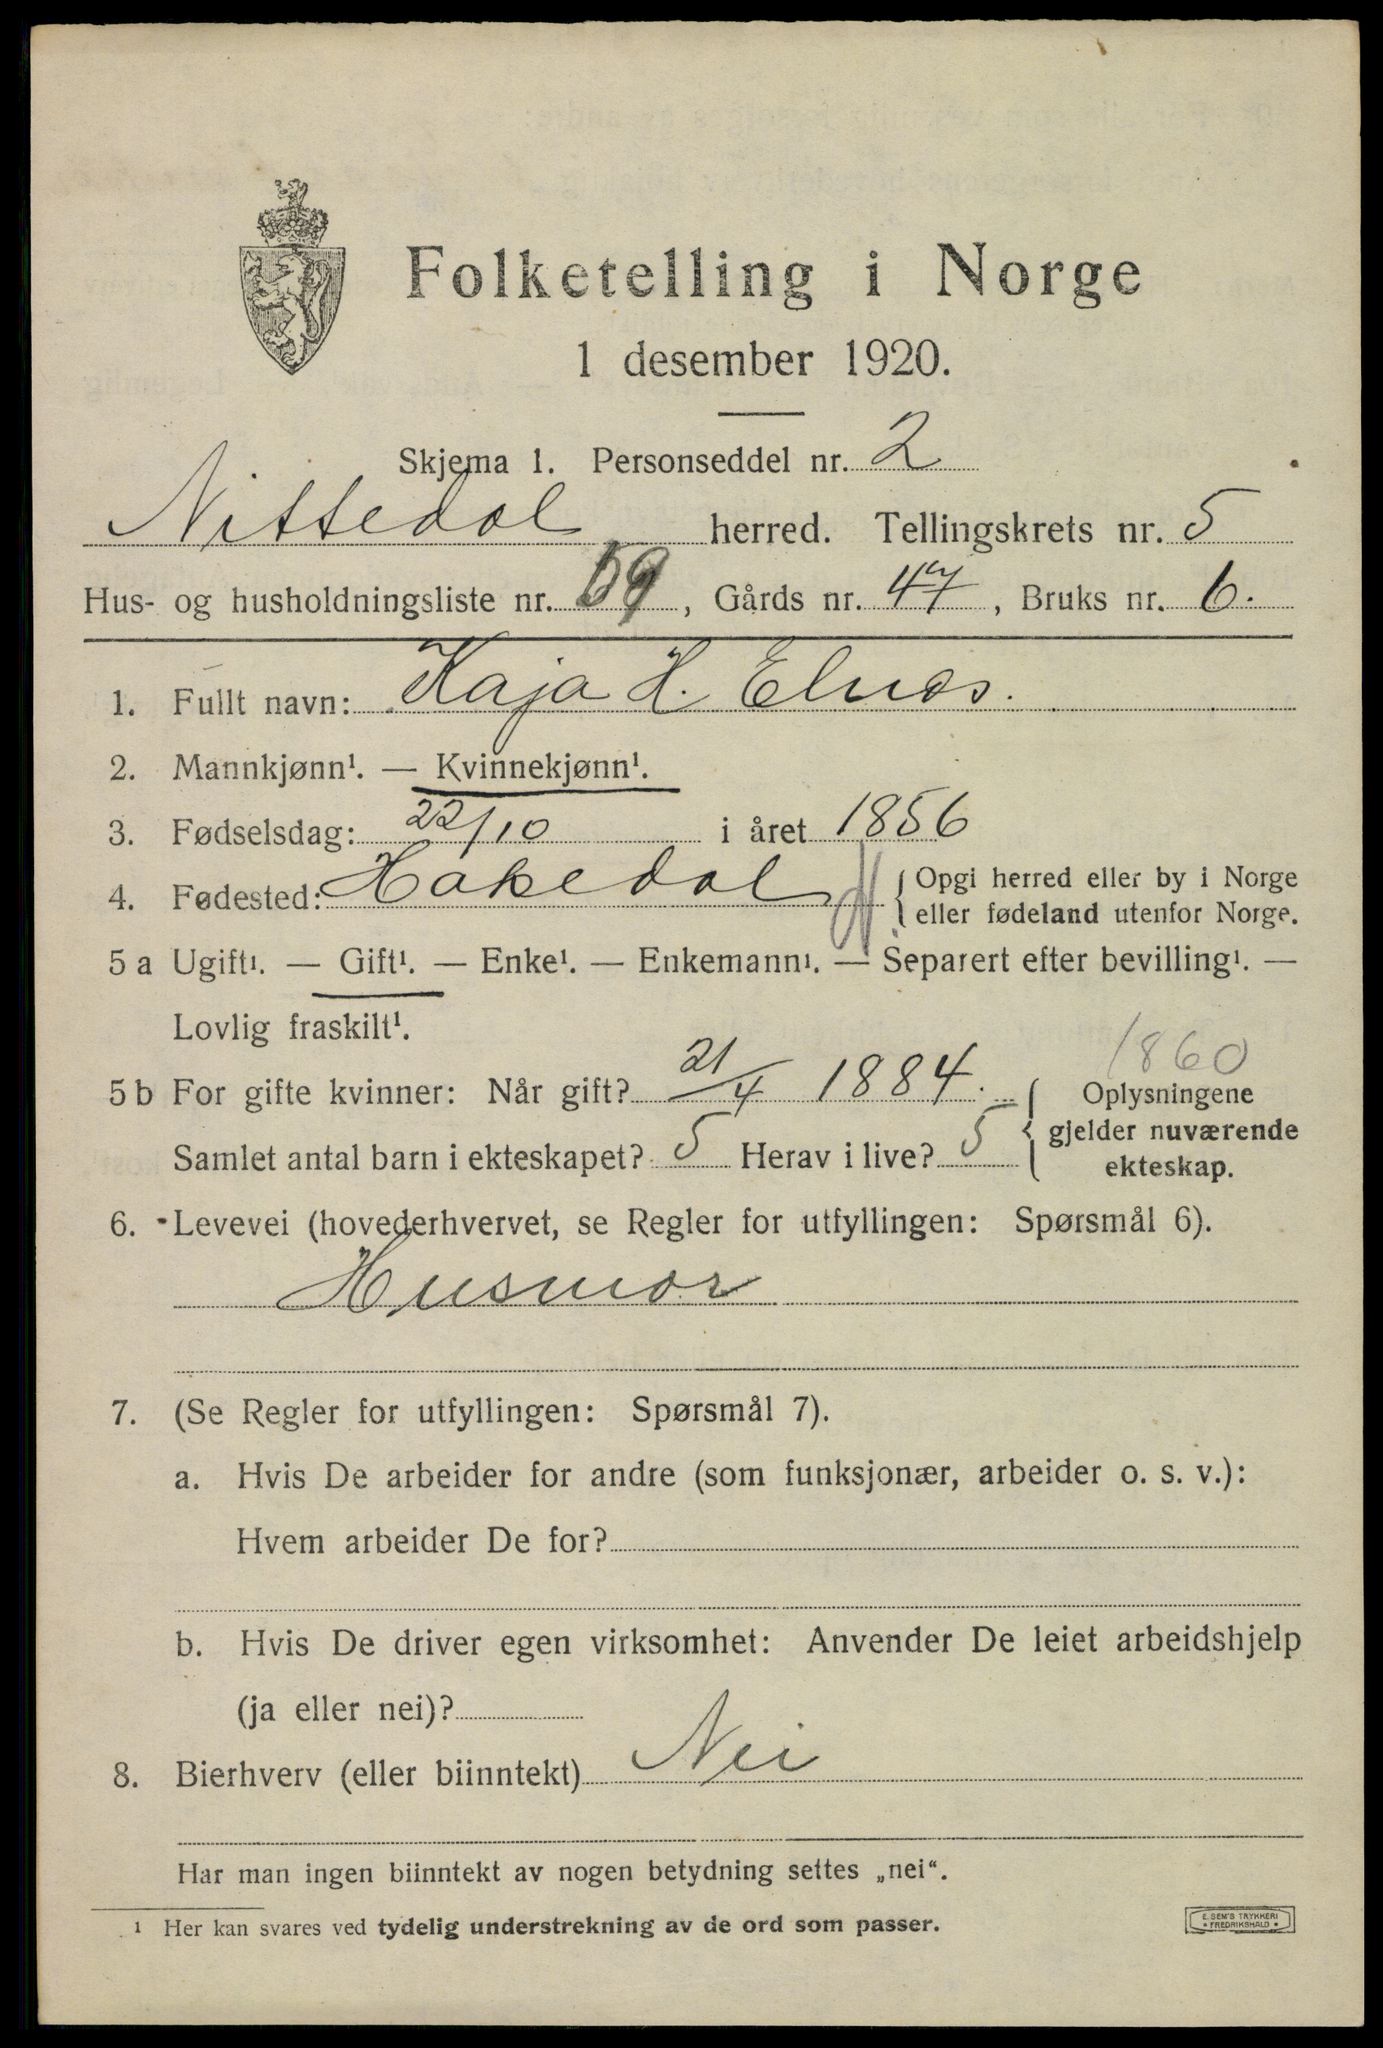 Folketelling i Norge
1 desember 1920.
Skjema 1. Personseddel nr. 2
Nittedal herred. Tellingskrets nr. 5
Hus- og husholdningsliste nr. 59, Gårds nr. 47, Bruks nr. 6.
1. Fullt navn: Kaja H. Elnæs.
2. Mannkjønn¹. — Kvinnekjønn¹.
3. Fødselsdag: 22/10 i året 1856
4. Fødested: Hakedal { Opgi herred eller by i Norge
eller fødeland utenfor Norge.
5 a Ugift¹. — Gift¹. — Enke¹. — Enkemann¹. — Separert efter bevilling¹. —
Lovlig fraskilt¹.
1860
5 b For gifte kvinner: Når gift? 21/4 1884. { Oplysningene
gjelder nuværende
Samlet antal barn i ekteskapet? 5 Herav i live? 5
ekteskap.
6. Levevei (hovederhvervet, se Regler for utfyllingen: Spørsmål 6).
Husmor
7. (Se Regler for utfyllingen: Spørsmål 7).
a. Hvis De arbeider for andre (som funksjonær, arbeider o. s. v.):
Hvem arbeider De for?
b. Hvis De driver egen virksomhet: Anvender De leiet arbeidshjelp
(ja eller nei)?
8. Bierhverv (eller biinntekt) Nei
Har man ingen biinntekt av nogen betydning settes „nei“.
¹ Her kan svares ved tydelig understrekning av de ord som passer.
E. SEM'S TRYKKERI
* FREDRIKSHALD *